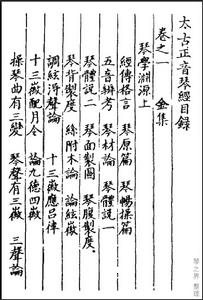 太古正音琴經目録
卷之一 金集
琴學淵源上
經傳格言 琴原篇 琴暢操篇
五音辨考 琴材論 琴體說一
琴體說二 琴面製圖 琴腹製度
琴背製度 絲附木論 論絃徽
調絃得聲論 十三徽應吕律
十三徽配月令 論九德四
操琴曲有三 琴聲有三 三聲論
琴之界 整理